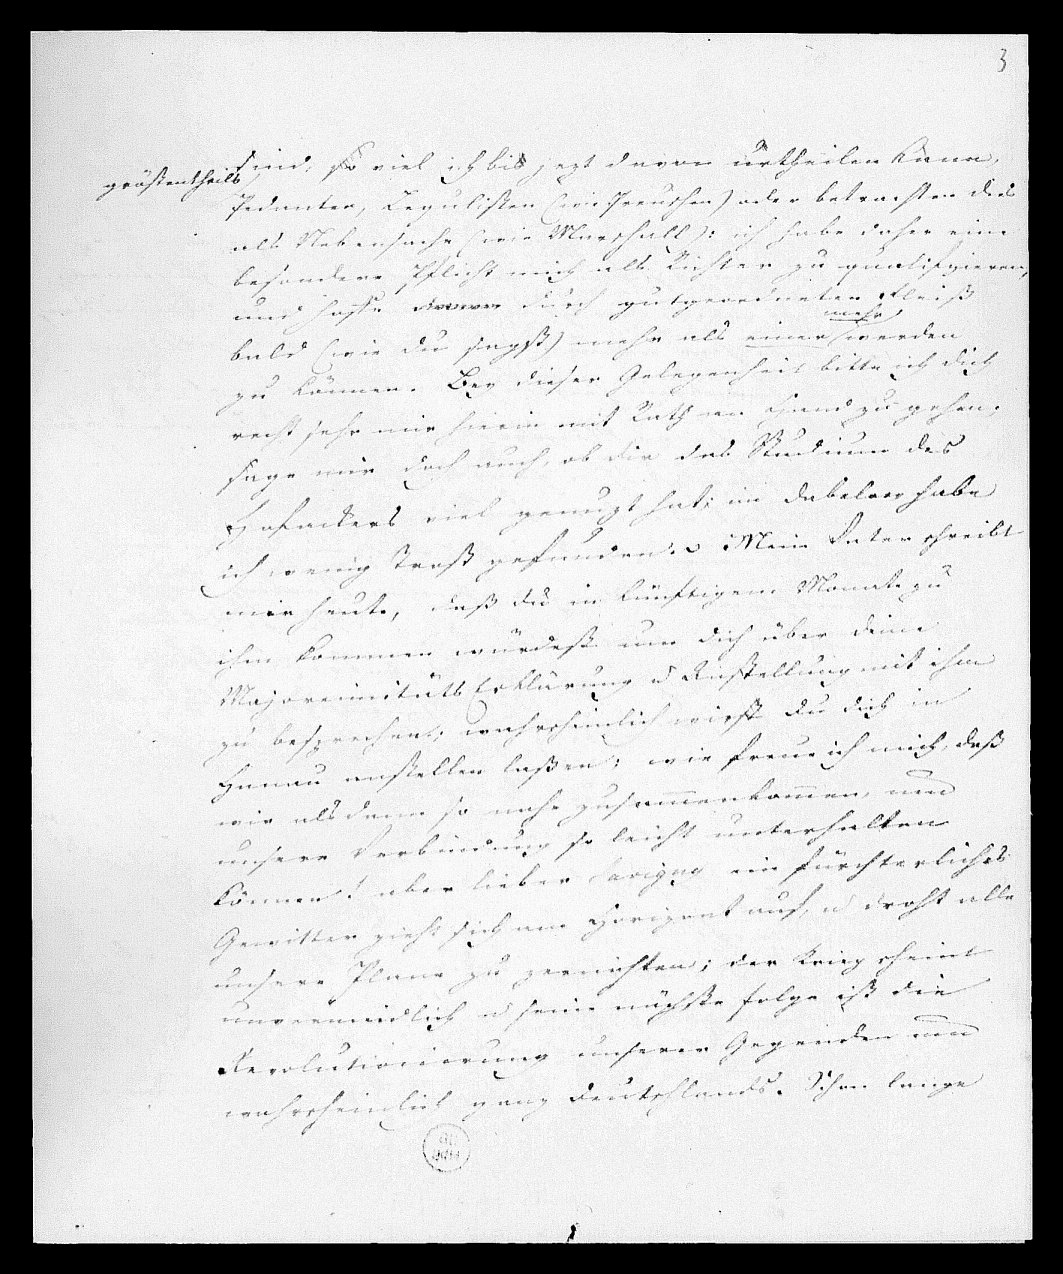 3
sind, so viel ich bis jezt davon urtheilen kann,
größtentheils
Pedanten, Legulisten (wie Preuschen) oder betrachten dies
als Nebensache (wie Marschall): ich habe daher eine
besondere Pflicht mich als Richter zu qualifizieren,
und hoffe durch gutgeordneten Fleiß
mehr
bald (wie du sagst) mehr als einer werden
zu können. Bey dieser Gelegenheit bitte ich dich
recht sehr mir hierin mit Rath an Hand zu gehen.
sage mir doch auch, ob dir das Studium des
Hofackers viel genuzt hat; im Dabelow habe
ich wenig Trost gefunden. Mein Vater schreibt
mir heute, daß du in künftigem Monate zu
ihm kommen würdest um dich über deine
Majorennitäts Erklärung u Anstellung mit ihm
zu besprechen; wahrscheinlich wirst du dich in
Hanau anstellen laßen; wie freue ich mich, daß
wir alsdann so nahe zusammenkommen, und
unsere Verbindung so leicht unterhalten
können! aber lieber Savigny ein fürchterliches
Gewitter zieht sich am Horizont auf, u droht alle
unsere Plane zu zernichten; der Krieg scheint
unvermeidlich u seine nächste folge ist die
Revolutionierung unserer Gegenden und
wahrscheinlich ganz Deutschlands. Schon lange